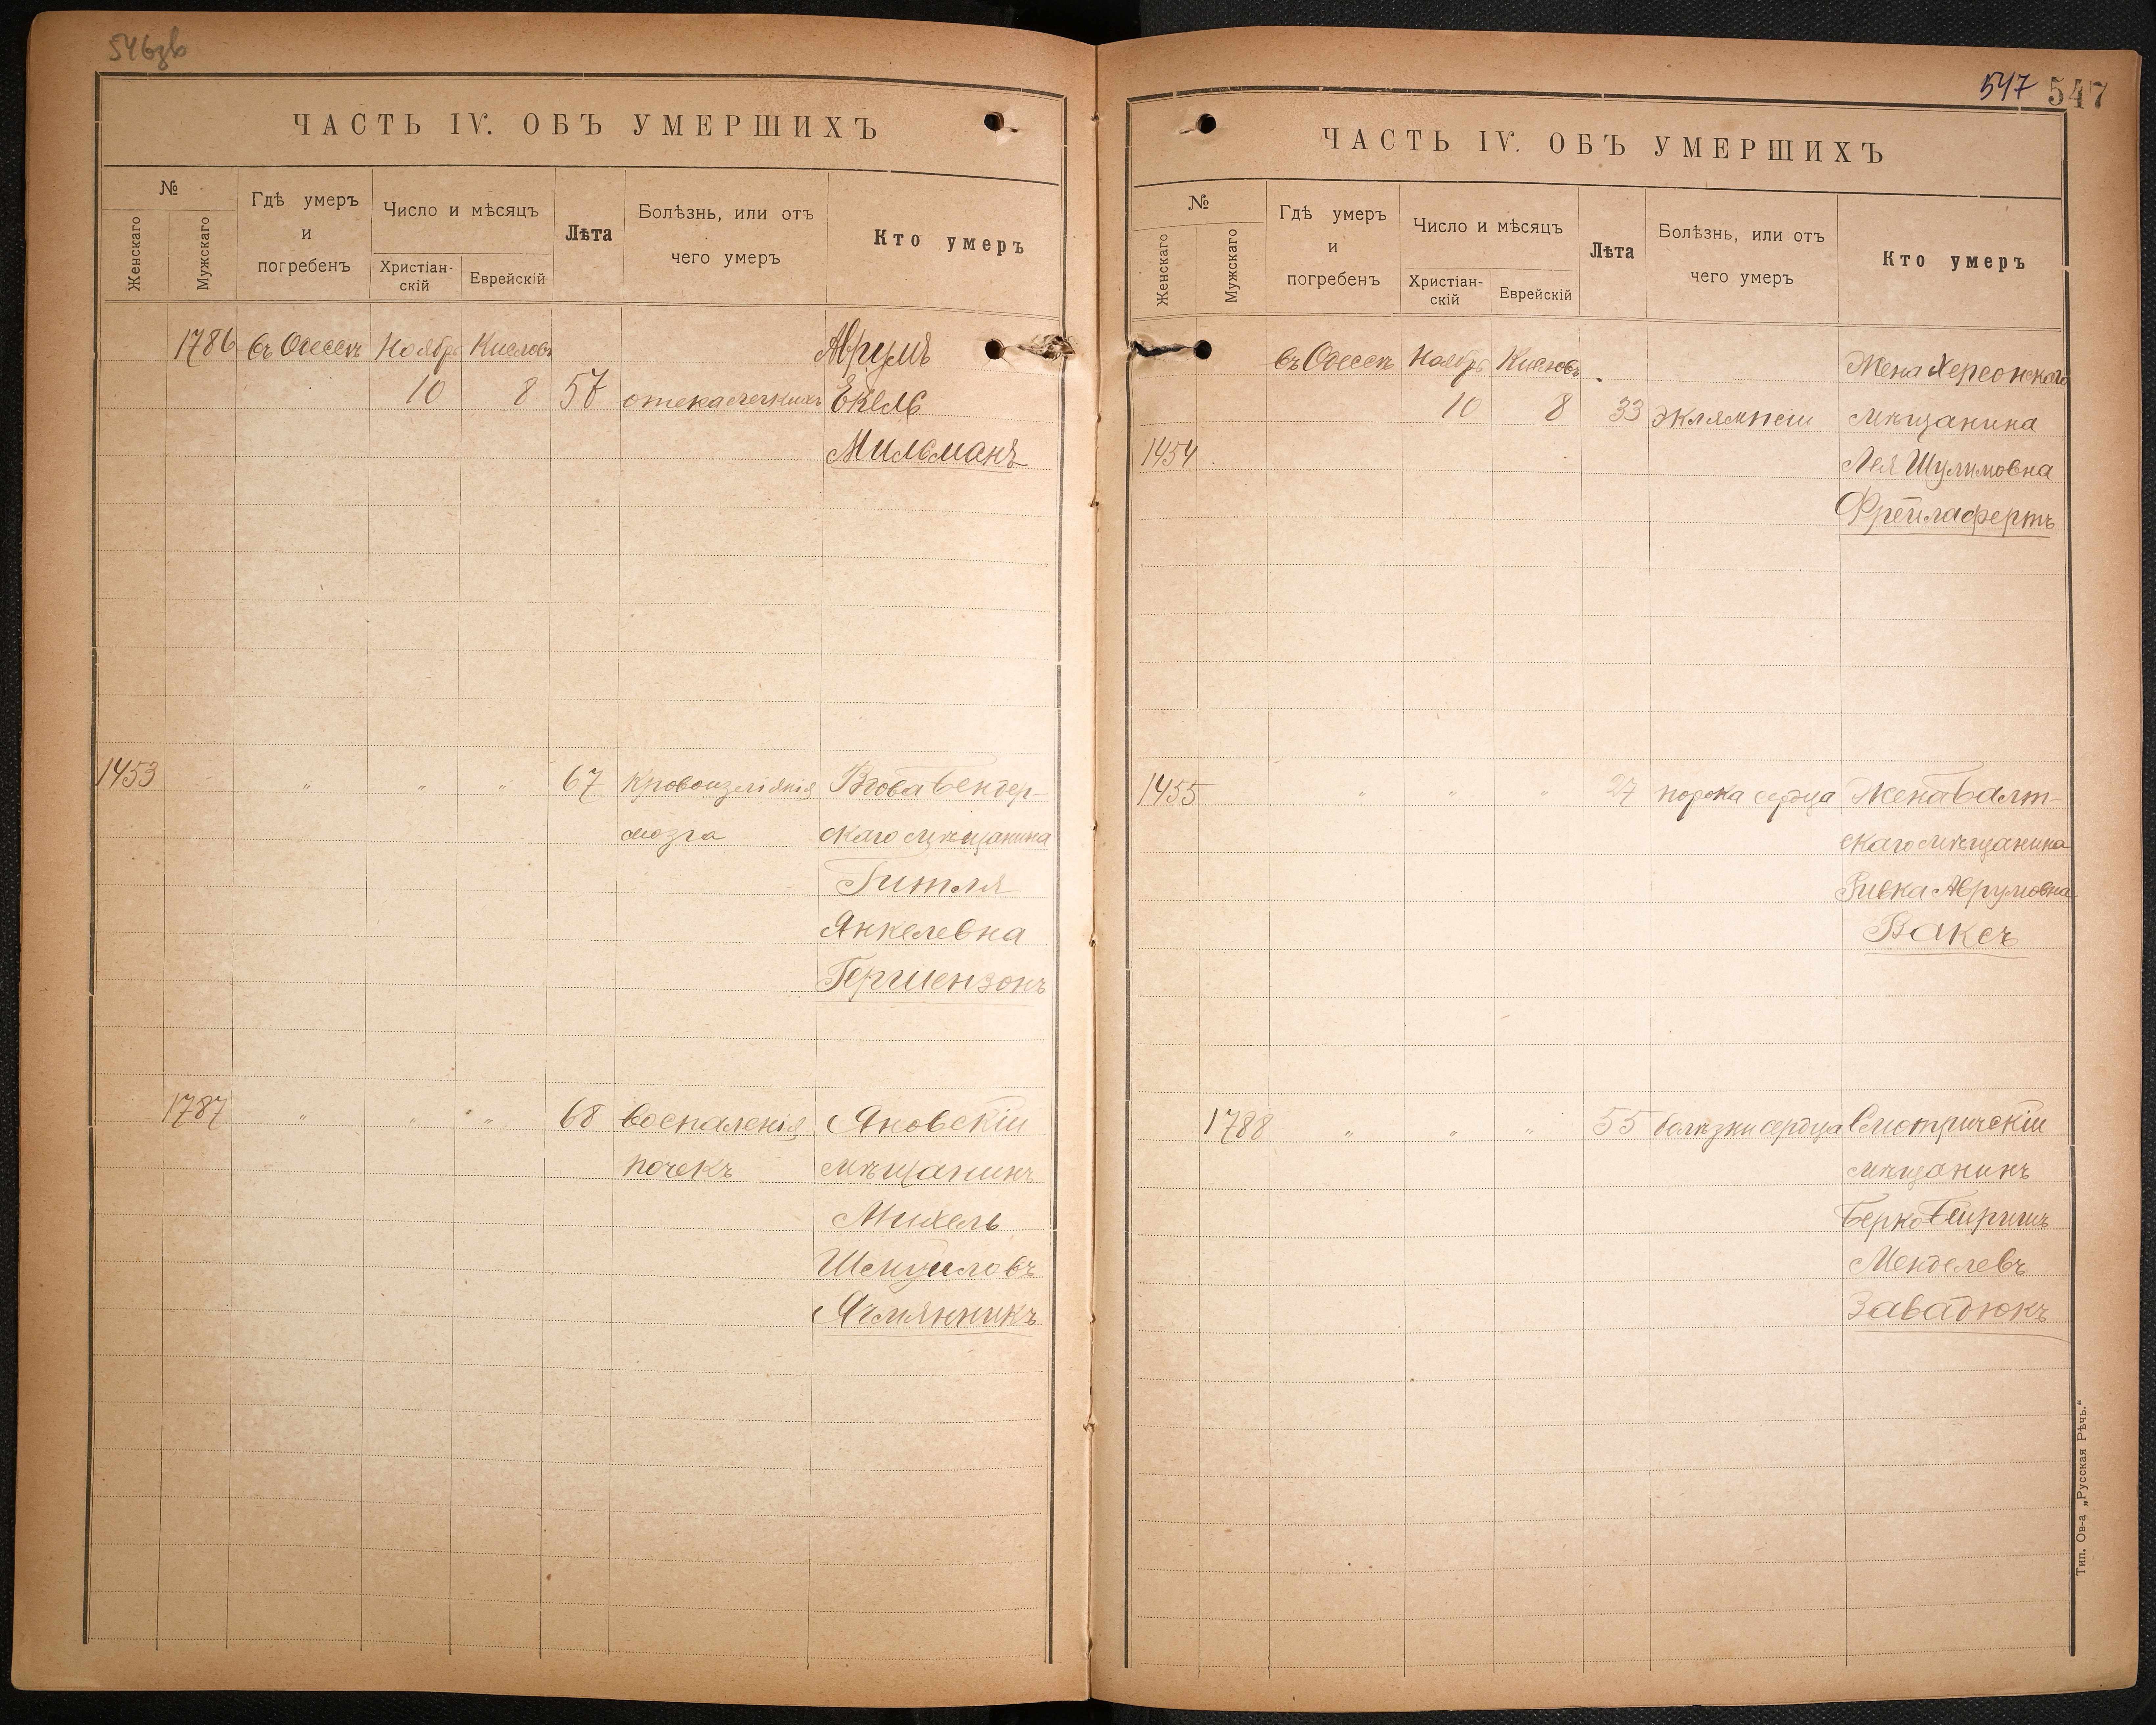 546 зв
ЧАСТЬ IV. ОБЪ УМЕРШИХЪ
№
Женскаго
Мужскаго
Гдѣ умеръ
и
погребенъ
Число и мѣсяцъ
Христіан-
скій
Еврейскій
Лѣта
Болѣзнь, или отъ
чего умеръ
Кто умеръ
1786 въ Одессѣ Ноябр Кислевъ Аврумъ
10 8 57 отека легкихъ Екель
Мильманъ
1453 " " " 67 Кровоизліянія Вдова Бендер-
мозга скаго мѣщанина
Гитля
Янкелевна
Гершензонъ
1787 " " " 68 Воспаленія Яновскій
почекъ мѣщанинъ
Михель
Шмуиловъ
Ячмянникъ
547 547
ЧАСТЬ IV. ОБЪ УМЕРШИХЪ
№
Женскаго
Мужскаго
Гдѣ умеръ
и
погребенъ
Число и мѣсяцъ
Христіан-
скій
Еврейскій
Лѣта
Болѣзнь, или отъ
чего умеръ
Кто умеръ
въ Одессѣ Ноябр Кислевъ Жена Херсонскаго
10 8 33 Эклямпсіи мѣщанина
1454 Лея Шулимовна
Фрейлафертъ
1455 " " " 27 порока сердца Жена Балт-
скаго мѣщанина
Ривка Аврумовна
Ваксъ
1788 " " " 55 болѣзни сердца Смотричскій
мѣщанинъ
Берко Бейришъ
Менделевъ
Завадюкъ
Тип. Ов-а „Русская Рѣчь."